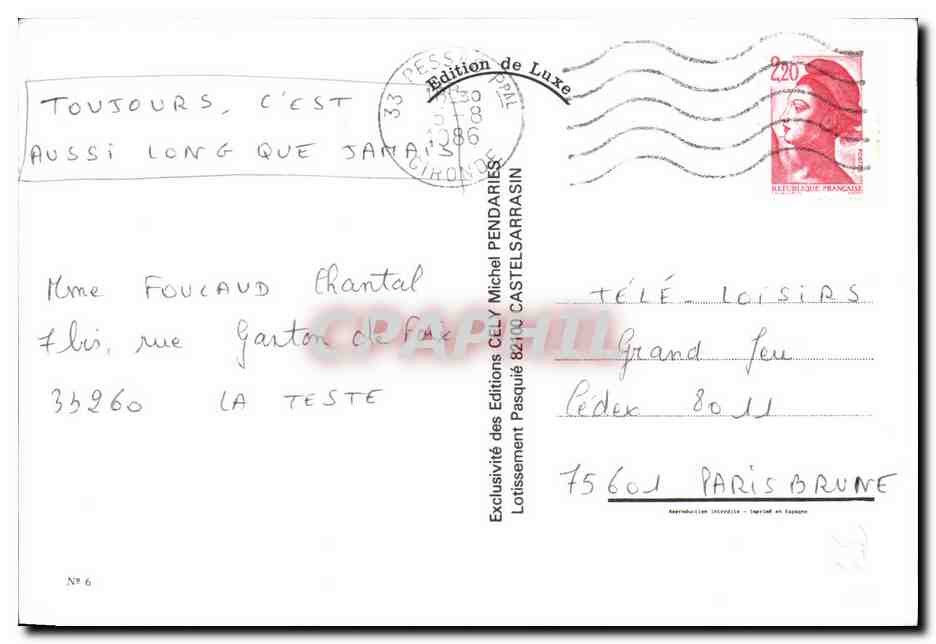 TOUJOURS, C'EST
AUSSI LONG QUE JAMAIS
Mme FOUCAUD Chantal
7 bis, rue Gaston de Foix
33260 LA TESTE
Nº 6
33 PESSAC PPAL
8
1986
GIRONDE
Edition de Luxe
Exclusivité des Editions CELY Michel PENDARIES
Lotissement Pasquié 82100 CASTELSARRASIN
2,20
POSTES
REPUBLIQUE FRANÇAISE
TÉLÉ-LOISIRS
Grand Jeu
Cédex 8011
75601 PARIS BRUNE
Reproduction interdite - Imprimé en Espagne
CPAPHIL